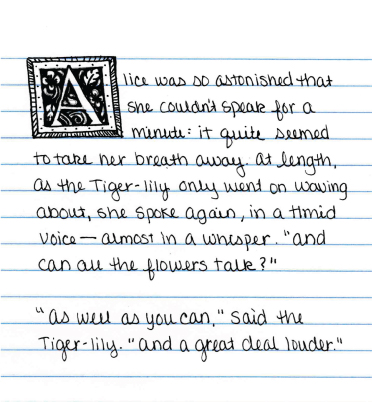 Alice was so astonished that
she couldn't speak for a
minute: it quite seemed
to take her breath away. At length,
as the Tiger-lily only went on waving
about, she spoke again, in a timid
voice — almost in a whisper. "and
can all the flowers talk?"
"as well as you can," said the
Tiger-lily. "and a great deal louder."